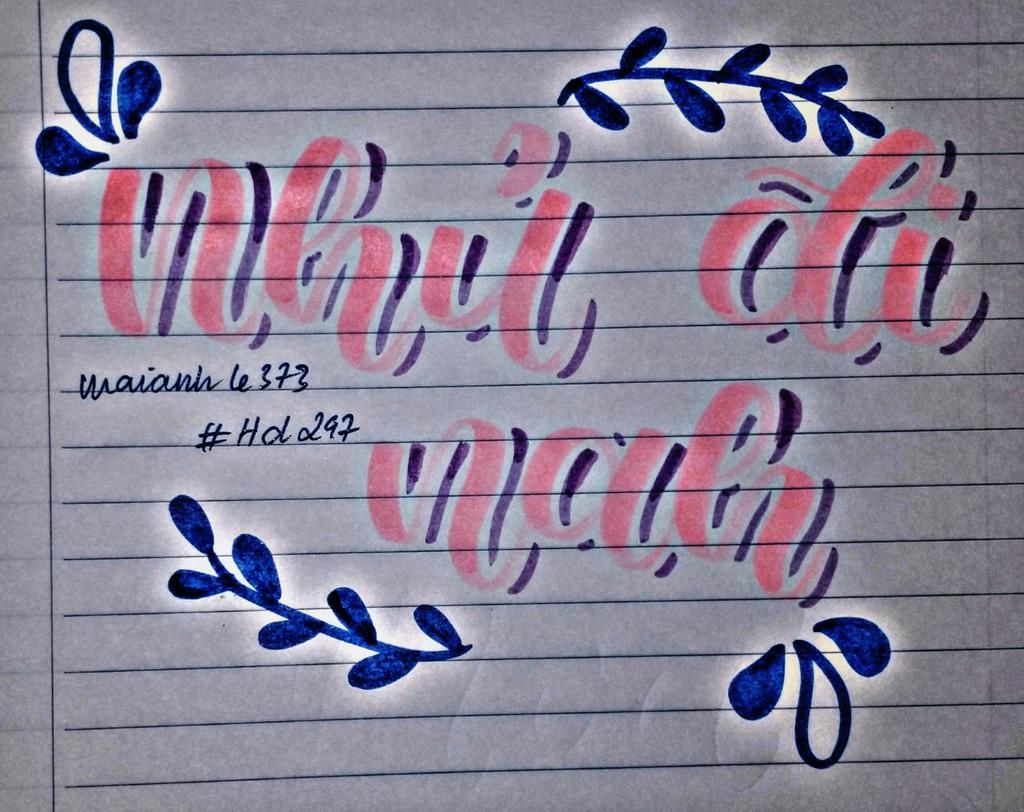 Như đi
maianh le 373
#Hd 297
nah